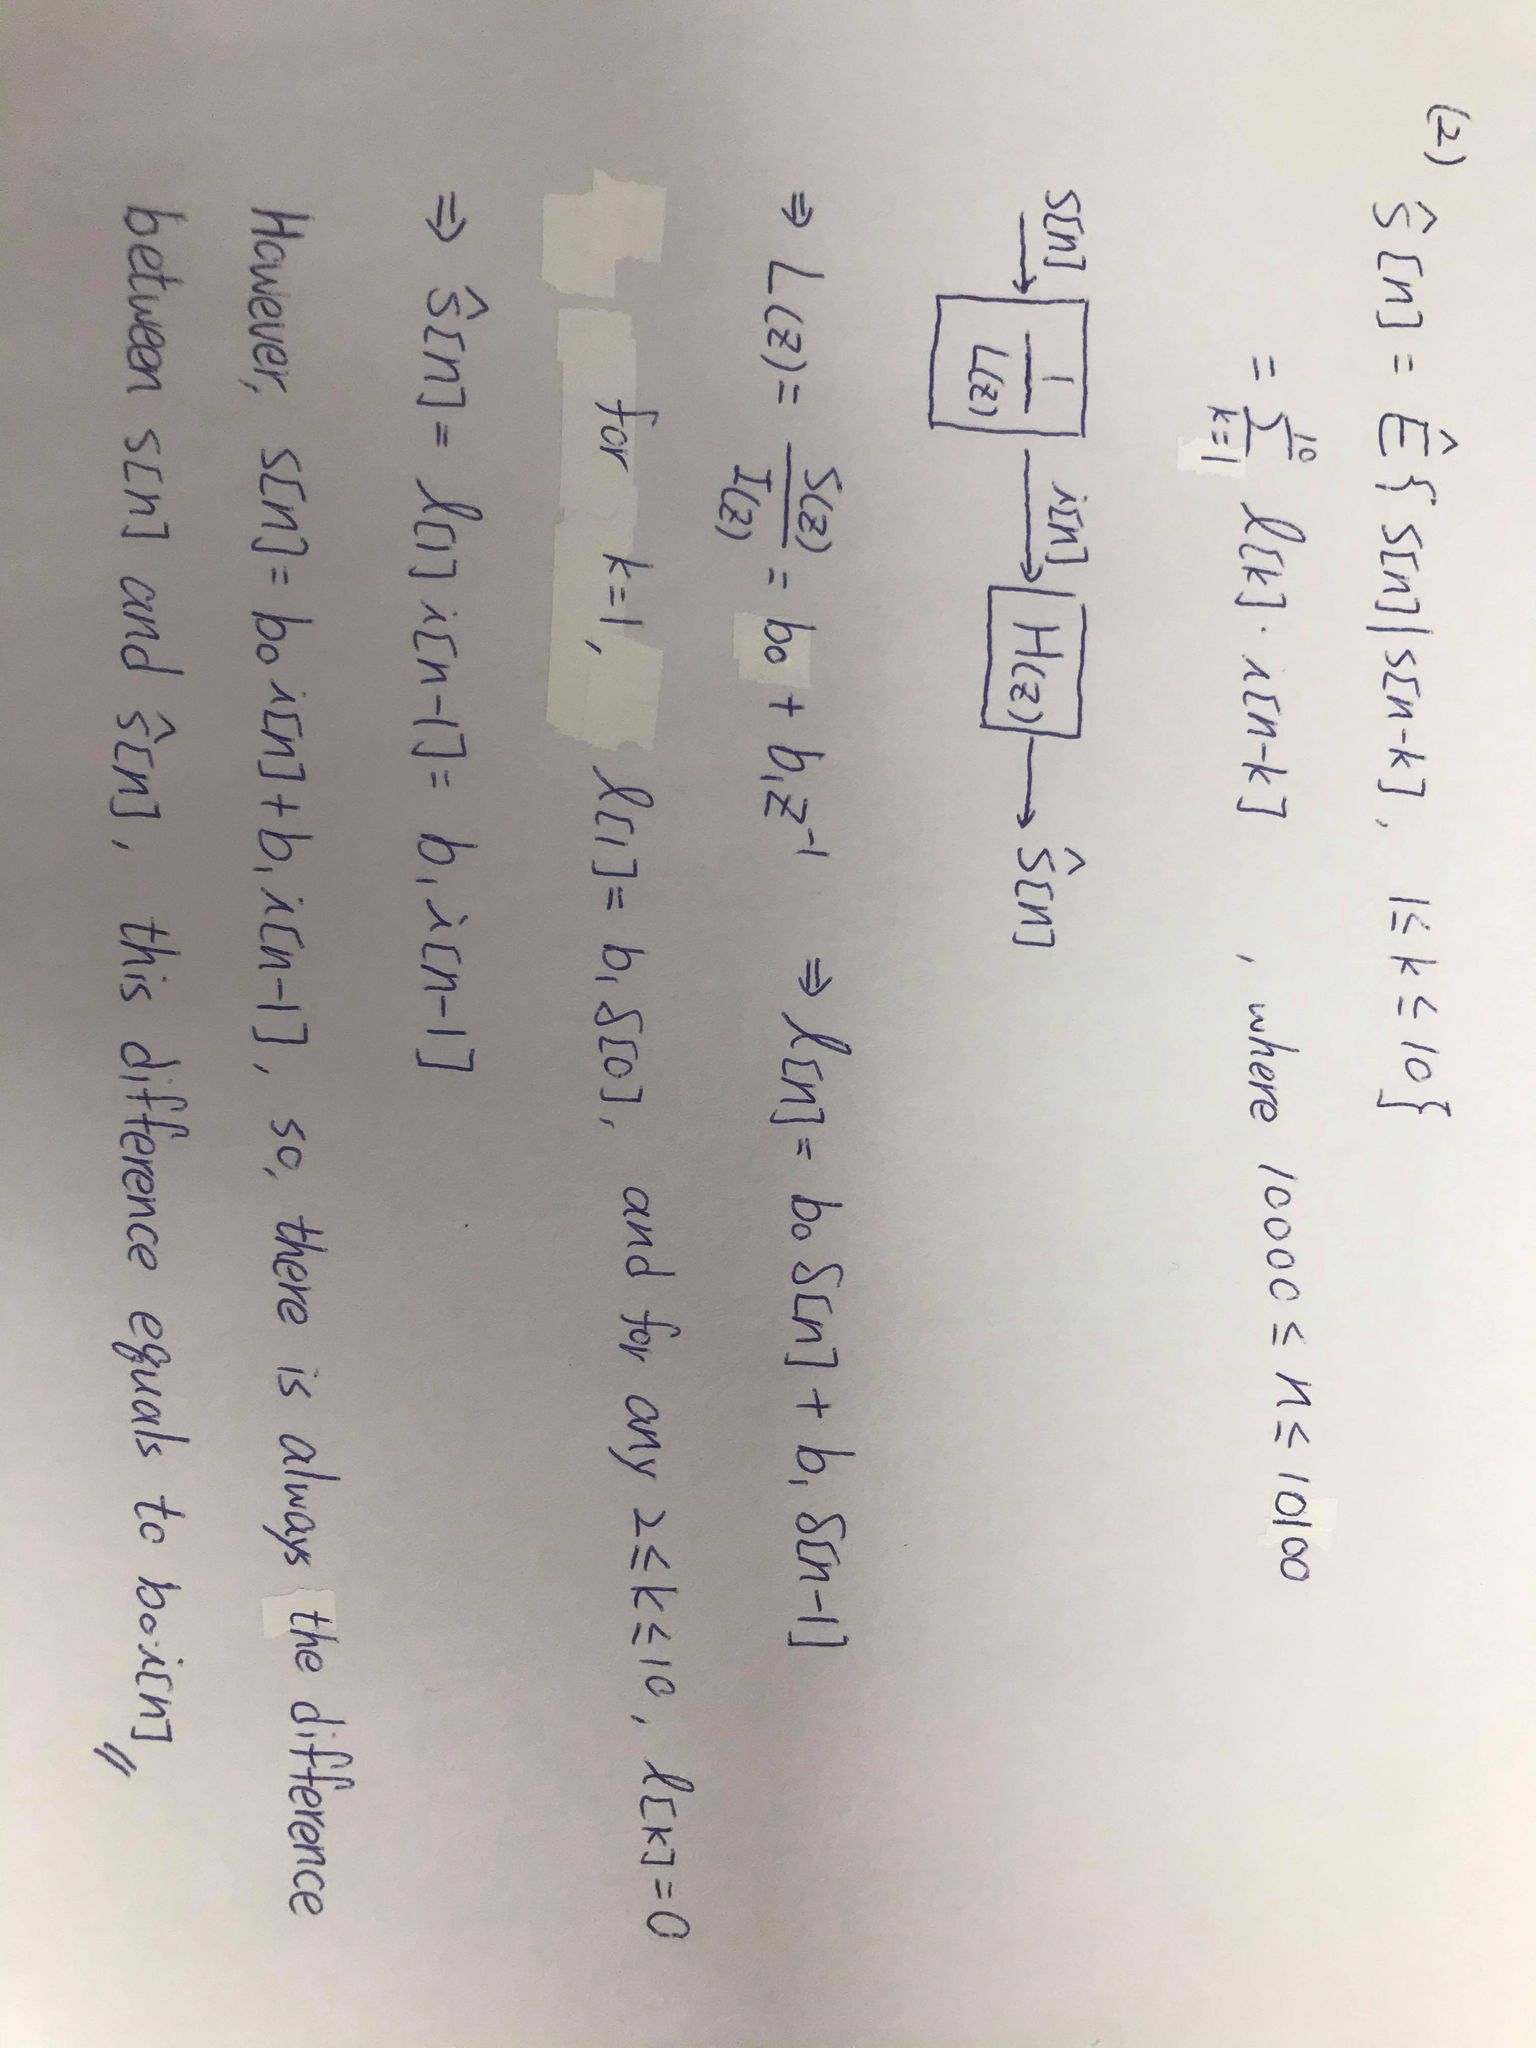 (2) ŝ[n] = Ê{s[n]|s[n-k], 1≤k≤10}
= ∑_{k=1}^{10} l[k]·i[n-k] , where 10000 ≤ n ≤ 10100
s[n] → 1/L(z) → i[n] → H(z) → ŝ[n]
⇒ L(z) = S(z)/I(z) = b₀ + b₁z⁻¹ ⇒ l[n] = b₀δ[n] + b₁δ[n-1]
for k=1, l[1] = b₁δ[0], and for any 2≤k≤10, l[k]=0
⇒ ŝ[n] = l[1]i[n-1] = b₁i[n-1]
However, s[n] = b₀i[n]+b₁i[n-1], so, there is always the difference
between s[n] and ŝ[n], this difference equals to b₀i[n] //